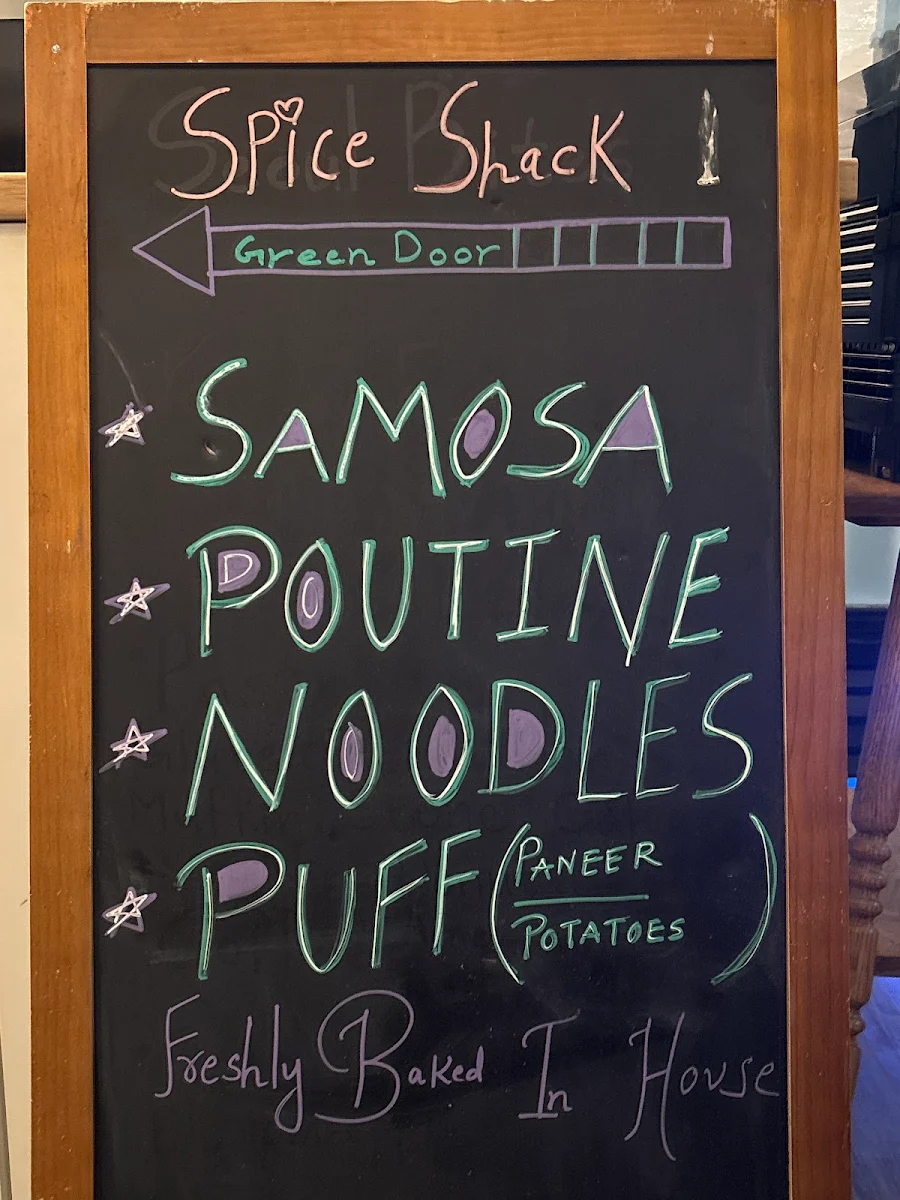 Spice Shack
Green Door
SAMOSA
POUTINE
NOODLES
PUFF (PANEER
POTATOES)
Freshly Baked In House